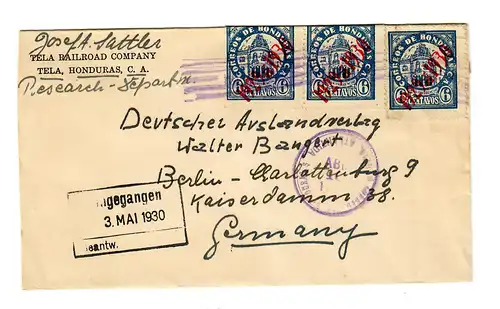 Josef A. Sattler
TELA RAILROAD COMPANY
TELA, HONDURAS, C. A.
Research-Departm.
CORREOS DE HONDURAS
6 CENTAVOS 6
CORREOS DE HONDURAS
6 CENTAVOS 6
CORREOS DE HONDURAS
6 CENTAVOS 6
Deutscher Auslandverlag
Walter Bangert
Berlin-Charlottenburg 9
Kaiserdamm 38.
Germany
ngegangen
3. MAI 1930
eantw.
AB